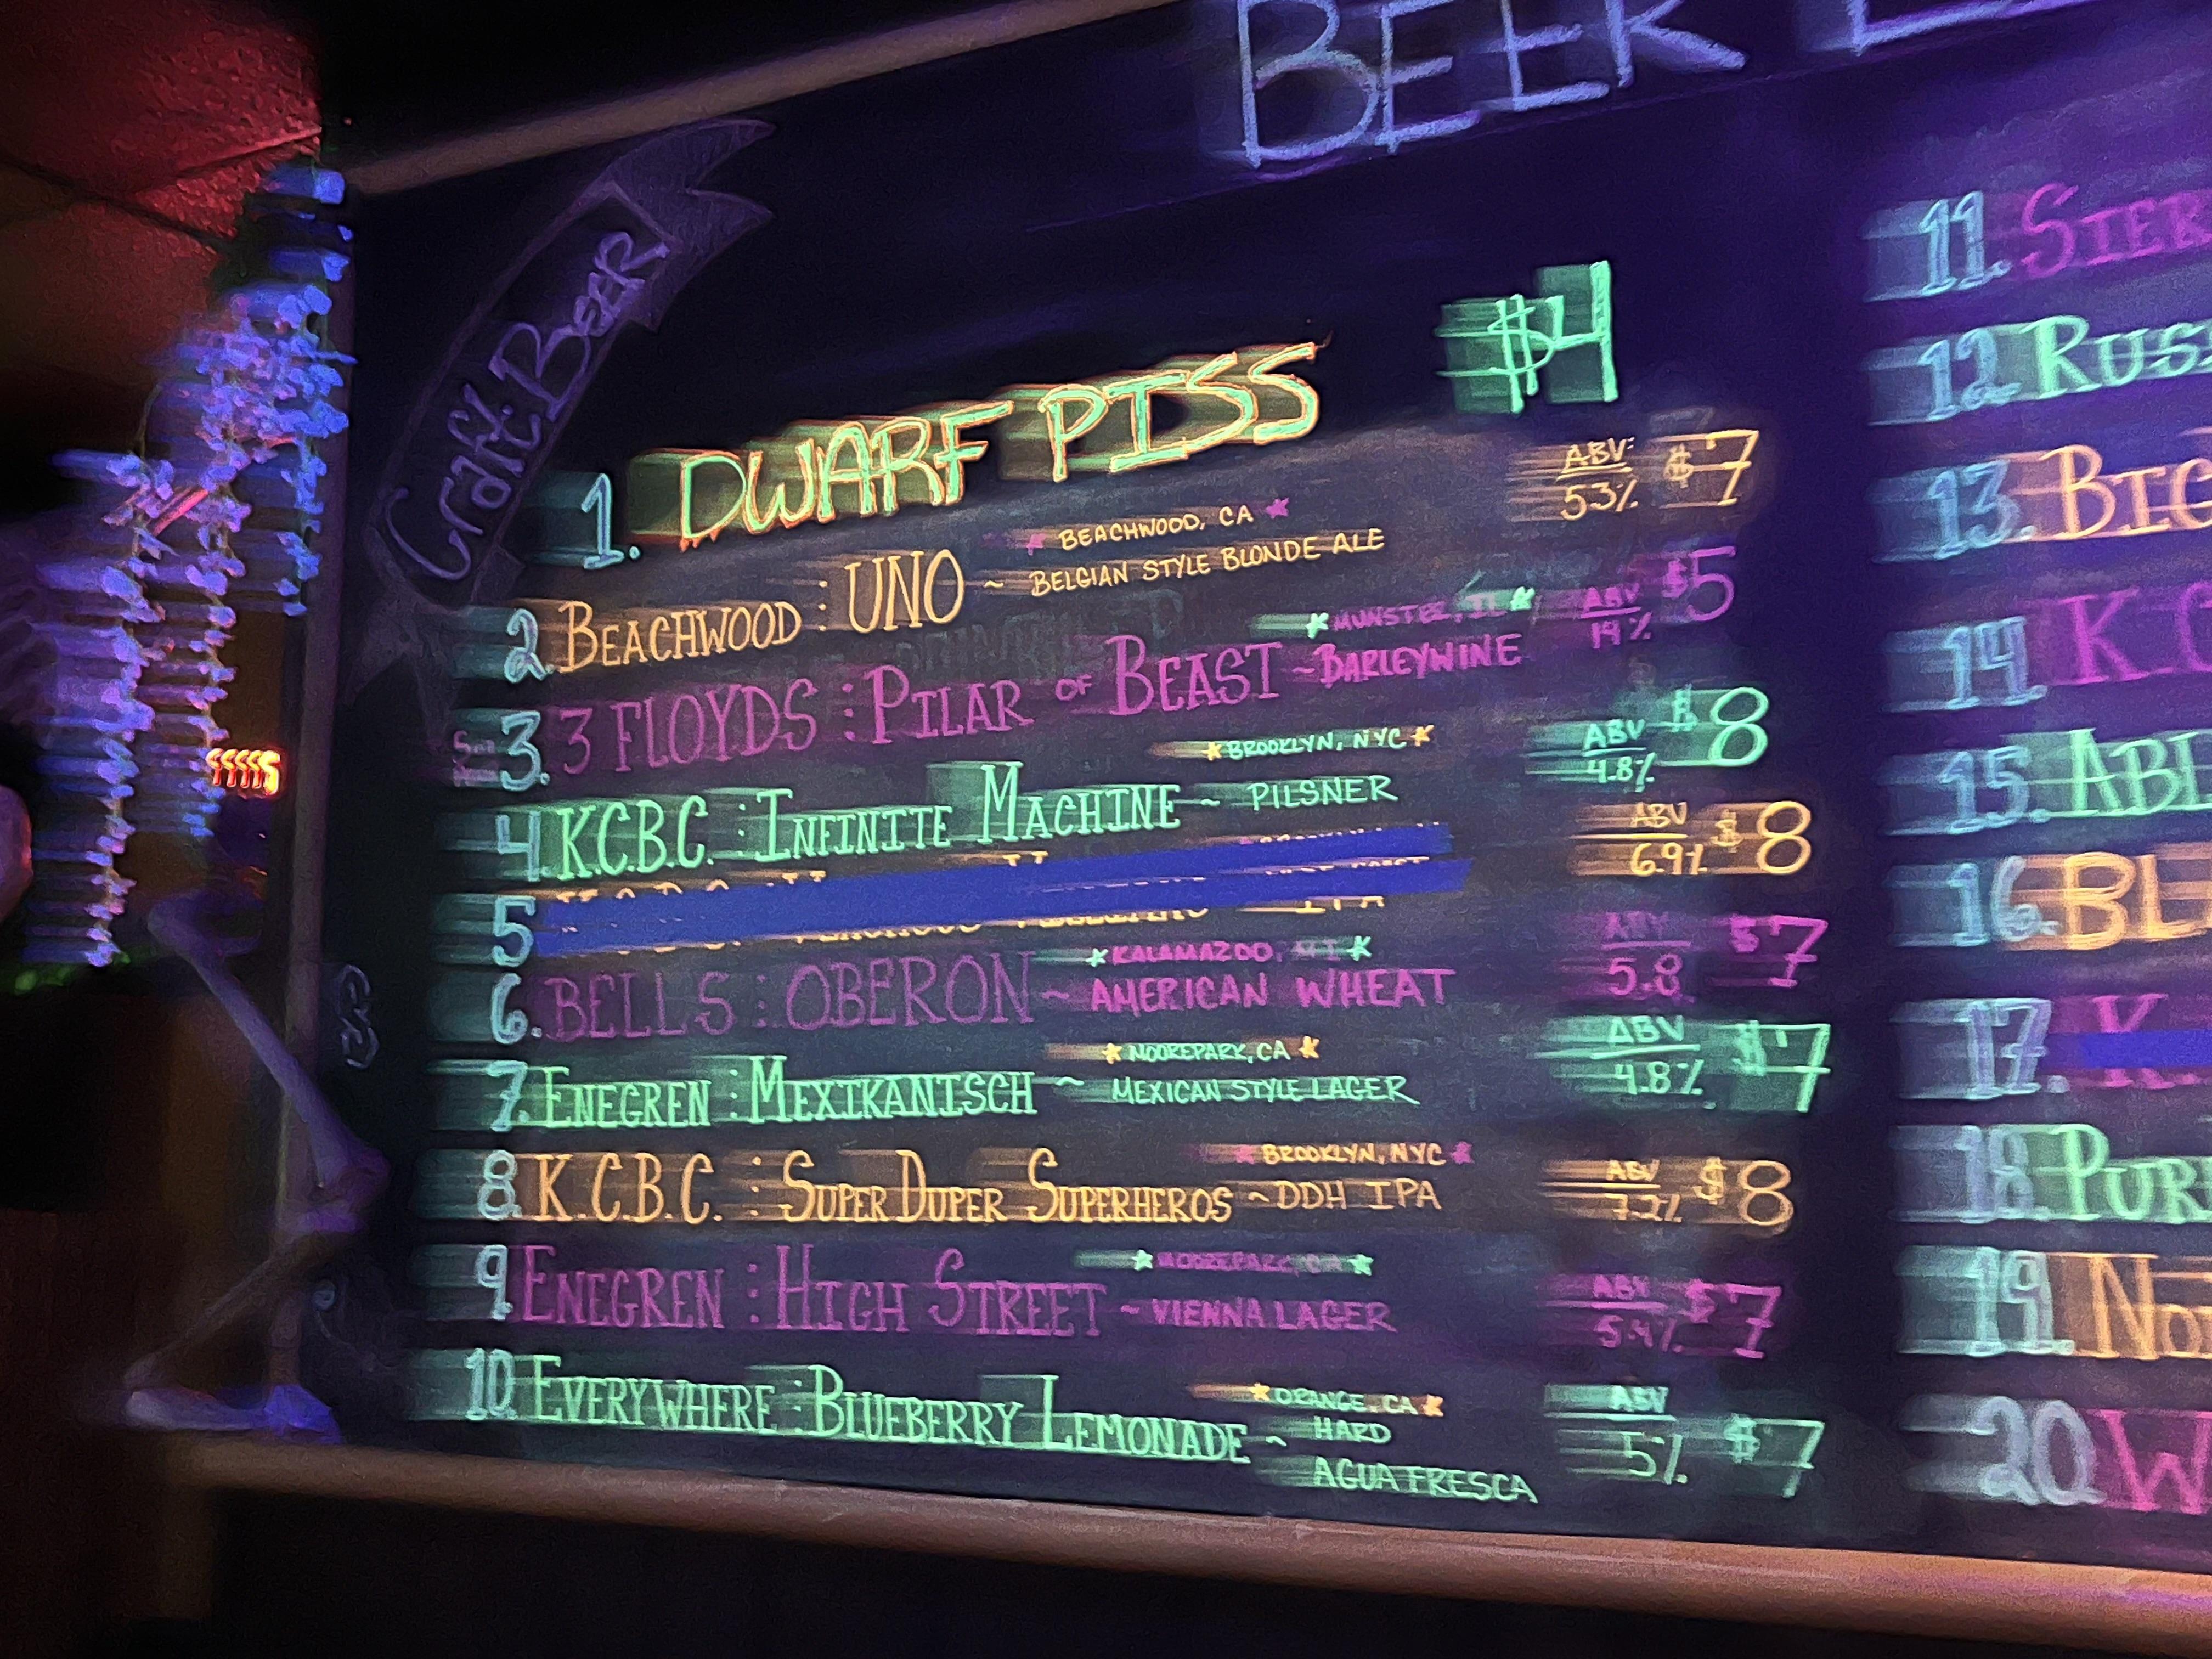 BEER
Craft Beer
1. DWARF PISS $4
★ BEACHWOOD, CA ★
2. BEACHWOOD : UNO ~ BELGIAN STYLE BLONDE ALE ABV: 5.3% $7
★ MUNSTER, ★
3. 3 FLOYDS : PILAR OF BEAST ~ BARLEYWINE ABV 14% $5
★ BROOKLYN, NYC ★
4. K.C.B.C. : INFINITE MACHINE ~ PILSNER ABV 4.8% $8
5 IPA ABV 6.9% $8
★ KALAMAZOO, MI ★
6. BELLS : OBERON ~ AMERICAN WHEAT ABV 5.8 $7
★ MOOREPARK, CA ★
7. ENEGREN : MEXIKANISCH ~ MEXICAN STYLE LAGER ABV 4.8% $7
★ BROOKLYN, NYC ★
8. K.C.B.C. : SUPER DUPER SUPERHEROS ~ DDH IPA ABV 7.2% $8
★ MOOREPARK, CA ★
9. ENEGREN : HIGH STREET ~ VIENNA LAGER ABV 5.4% $7
★ ORANGE, CA ★
10. EVERYWHERE : BLUEBERRY LEMONADE ~ HARD
AGUA FRESCA ABV 5% $7
11. STER
12 RUS
13. BIG
14 K.C
15. ABL
16. BL
17. K
18. PUR
19. NO
20 W